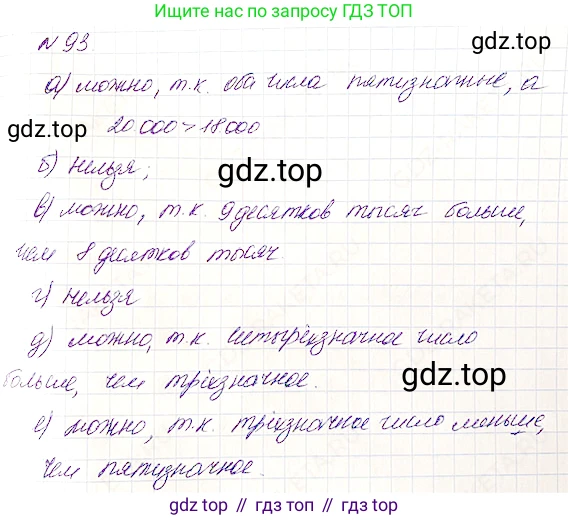 Ищите нас по запросу ГДЗ ТОП
N 93
gdz.top
а) можно, т.к. оба числа пятизначные, а
gdz.top
20 000 > 18 000
б) нельзя;
gdz.top
в) можно, т.к. 9 десятков тысяч больше,
чем 8 десятков тысяч.
г) нельзя
д) можно, т.к. четырёхзначное число
больше, чем трёхзначное.
gdz.top
е) можно, т.к. трёхзначное число меньше,
чем пятизначное.
gdz.top // гдз топ // гдз.топ // gdz top